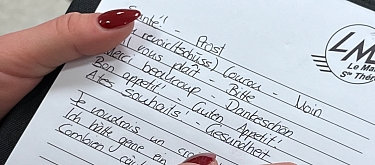 Santé! - Prost
revoir (tschüss) Coucou - Moin
vous plaît - Bitte
Merci beaucoup - Dankeschön
Bon appétit! - Guten Appetit!
A tes souhaits! - Gesundheit
Je voudrais un
Ich hätte gerne en
Combien
LM
Le Ma
Ste Thér